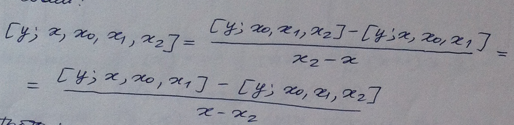 [y; x, x₀, x₁, x₂] = \frac{[y; x₀, x₁, x₂] - [y; x, x₀, x₁]}{x₂ - x} =
= \frac{[y; x, x₀, x₁] - [y; x₀, x₁, x₂]}{x - x₂}